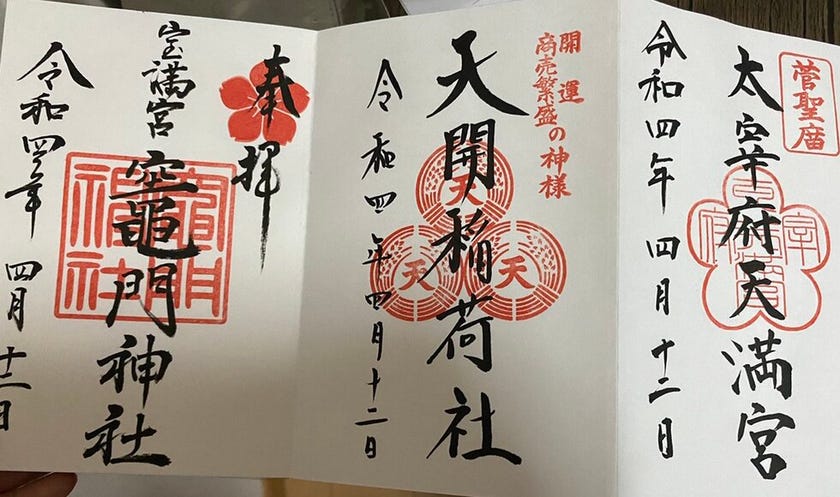 菅聖庿
太宰府天満宮
令和四年四月十二日
開運
商売繁盛の神様
天開稲荷社
天
天
天
令和四年四月十二日
奉拝
宝満宮
竈門神社
令和四年四月十二日